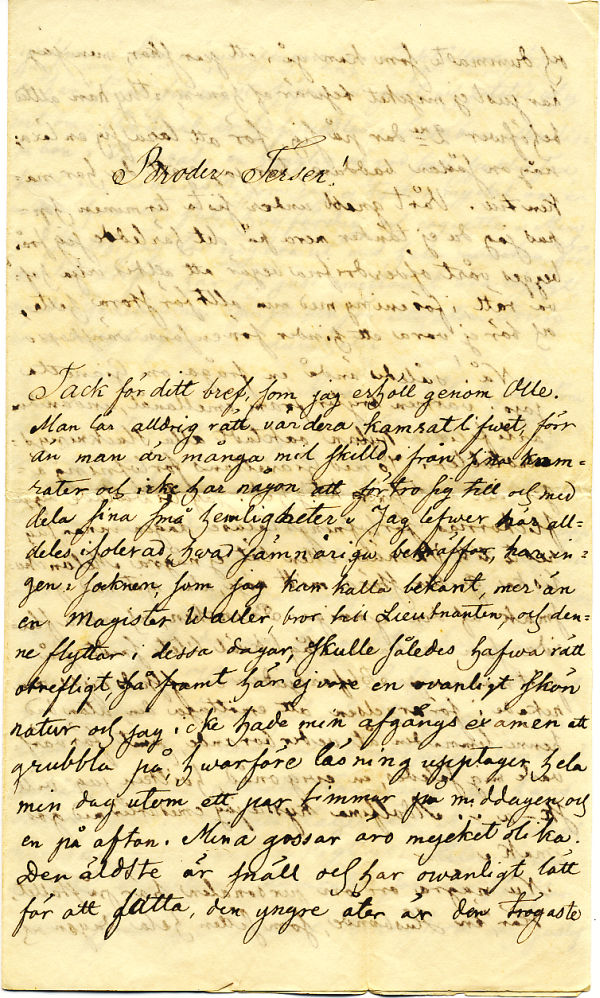 Broder Terser!
Tack för ditt bref, som jag erhöll genom Olle.
Man lär alldrig rätt värdera kamratlifwet, förr
än man är många mil skilld ifrån sina kam-
rater och icke har någon att förtro sig till och med
dela sina små hemligheter. Jag lefwer här all-
deles isolerad, hwad jämnåriga beträffar, har in-
gen i socknen, som jag kan kalla bekant, mer än
en Magister Waller, bror till Lieutnanten, och den-
ne flyttar i dessa dagar, skulle således hafwa rätt
otrefligt, så framt här ej vore en ovanligt skön
natur och jag icke hade min afgångs examen att
grubbla på, hwarföre läsning upptager hela
min dag utom ett par timmar på middagen och
en på afton. Mina gossar äro mycket olika.
Den äldste är snäll och har owanligt lätt
för att fatta, den yngre åter är den trögaste